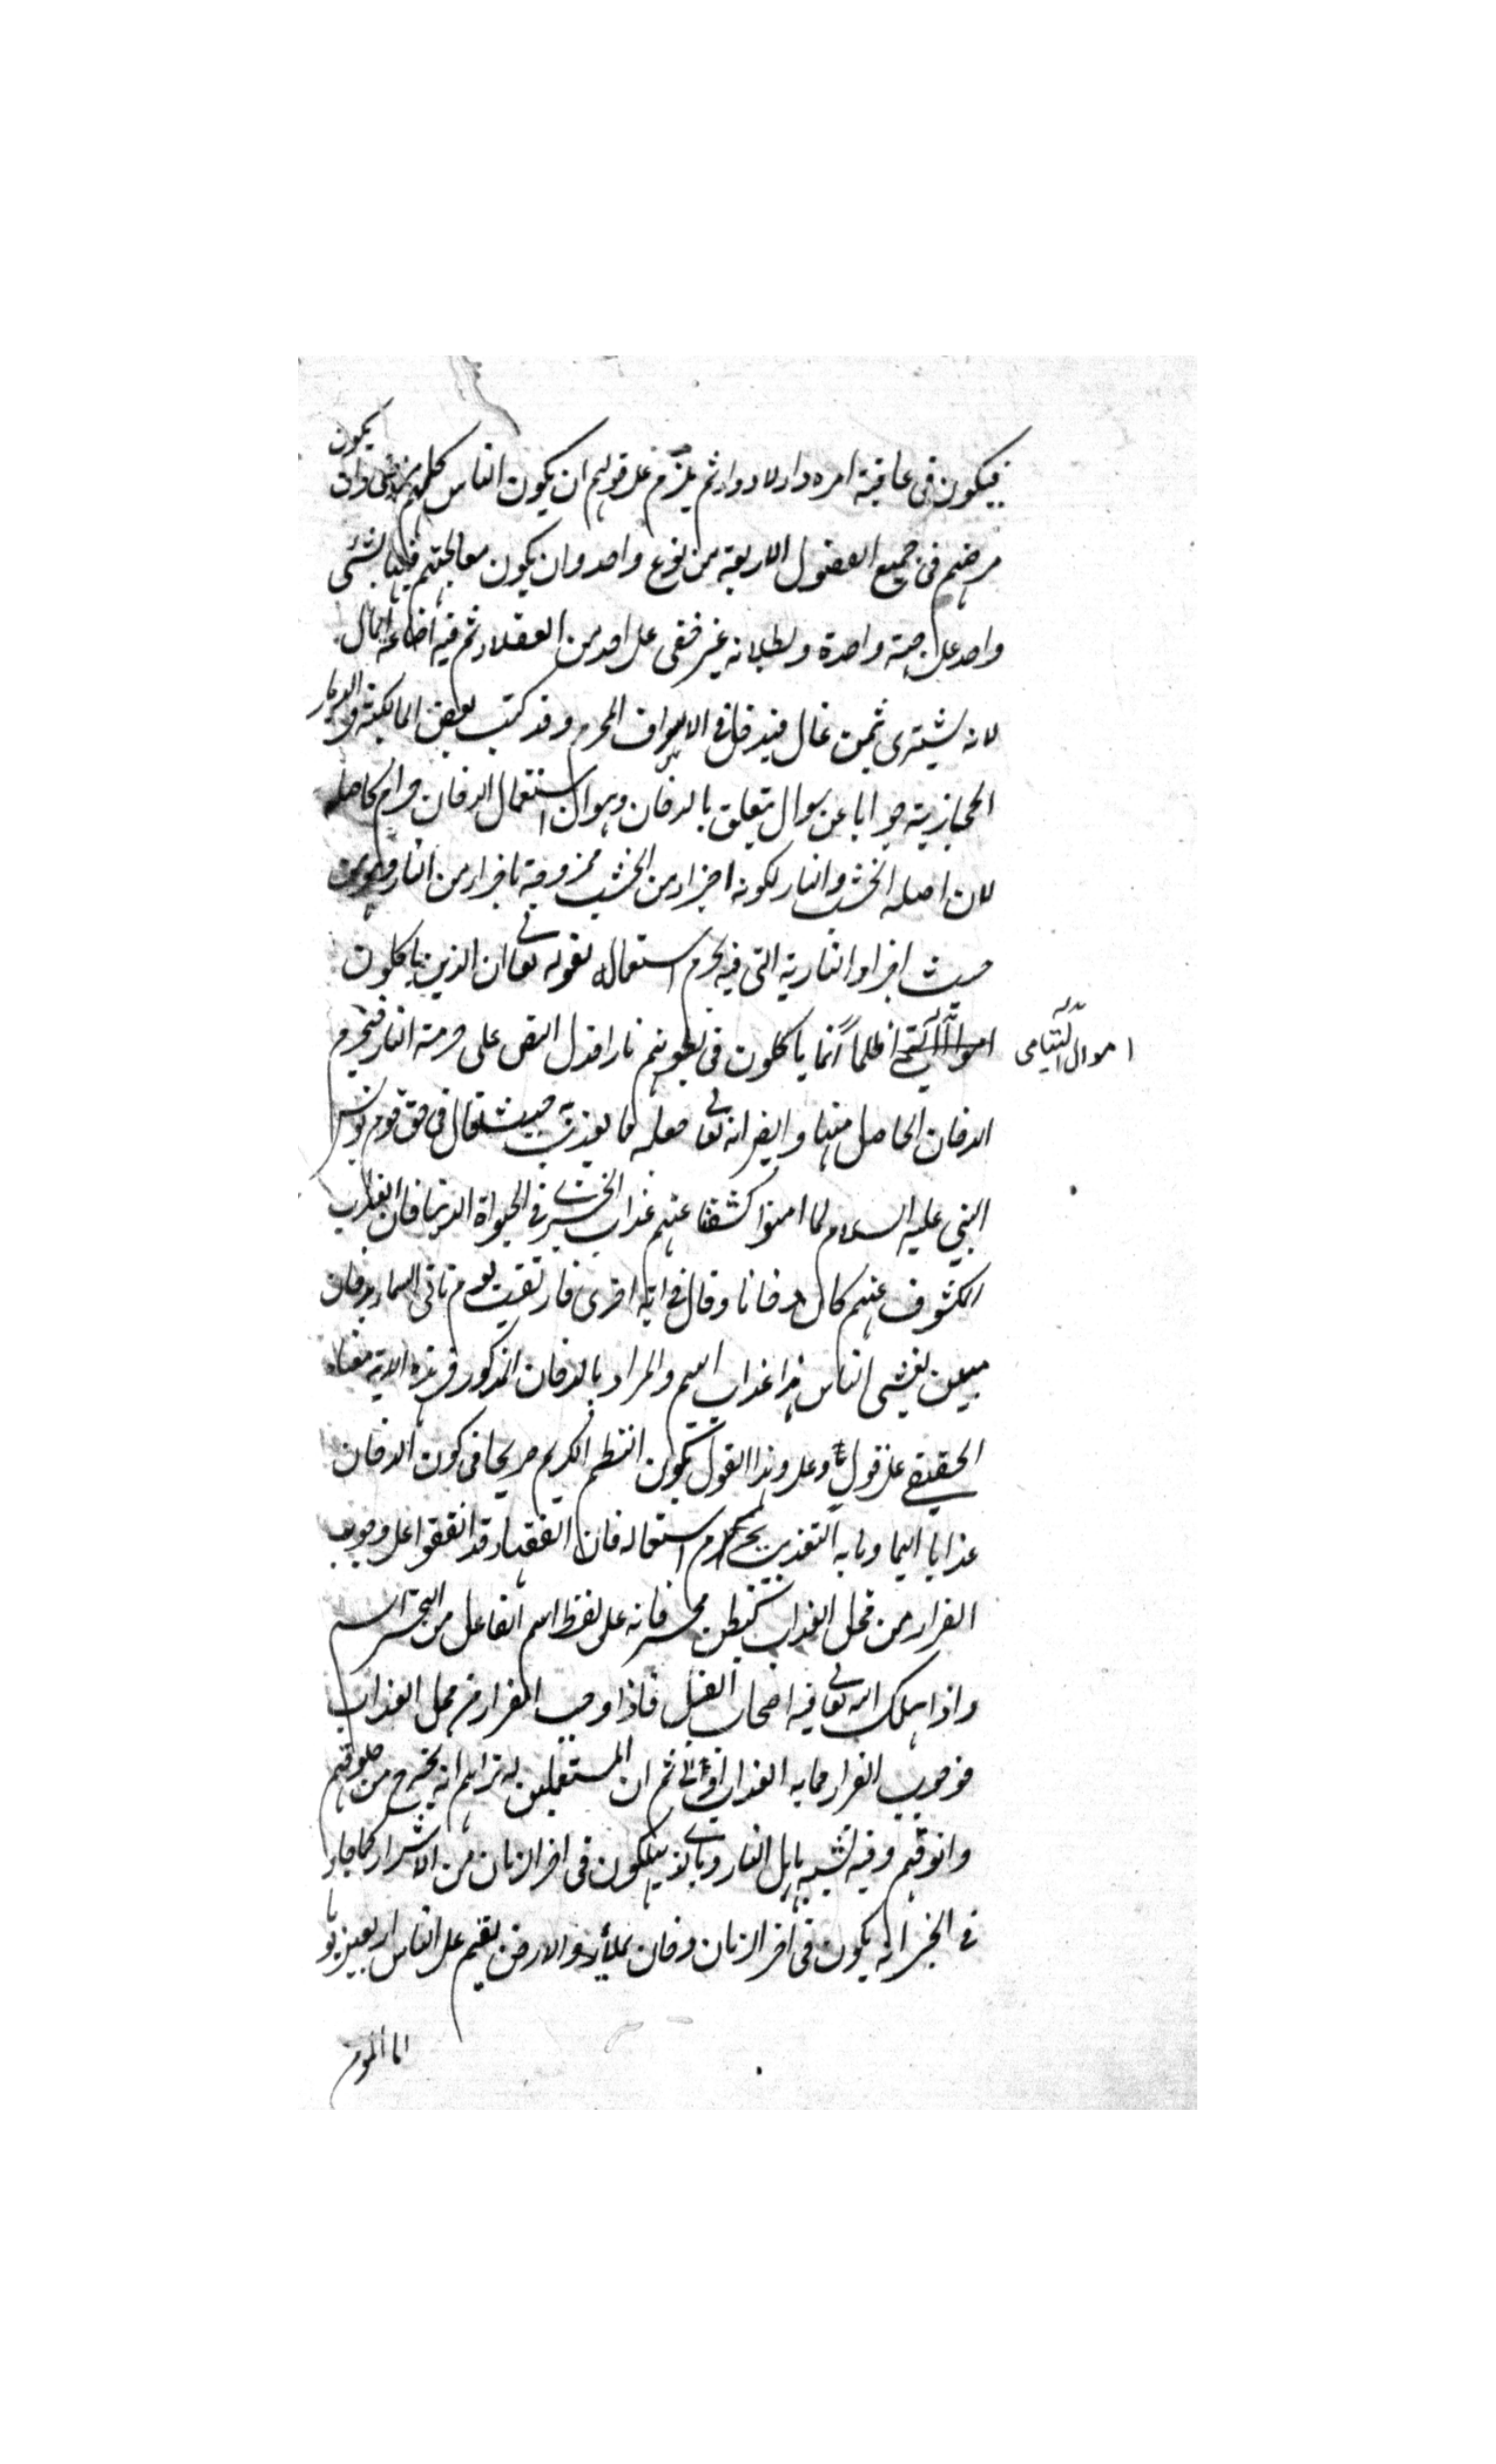 فيكون في عاقبة امره داء لا دواء ثم يلزم على قولهم ان يكون الناس كلهم مرضى وان يكون
مرضهم في جميع الفصول الاربعة من نوع واحد وان يكون معالجتهم فيها بشئ
واحد على جهة واحدة وبطلانه غير خفي على احد من العقلاء ثم فيه اضاعة المال
لانه يشترى بثمن غال فيدخل في الاسراف المحرم وقد كتب بعض المالكية في الديار
الحجازية جوابا عن سوال يتعلق بالدخان وهو ان استعمال الدخان حرام كاصله
لان اصله الخشب والنار لكونه اجزاء من الخشب ممزوجة باجزاء من النار وهو من
حيث اجزاء النارية التي فيه يحرم استعماله لقوله تعالى ان الذين ياكلون
اموال اليتامى ظلما انما ياكلون في بطونهم نارا فدل النص على حرمة النار فيحرم
الدخان الحاصل منها وايضا انه تعالى جعله مما يعذب به حيث قال في حق قوم يونس
النبي عليه السلام لما امنوا كشفنا عنهم عذاب الخزي في الحيواة الدنيا فان العذاب
المكشوف عنهم كان دخانا وقال في اية اخرى فارتقب يوم تاتي السماء بدخان
مبين يغشى الناس هذا عذاب اليم والمراد بالدخان المذكور في هذه الاية معناه
الحقيقي على قول وعلى هذا القول يكون النظم الكريم صريحا في كون الدخان
عذابا اليما وما به التعذيب يحرم استعماله فان الفقهاء قد اتفقوا على وجوب
الفرار من محل العذاب كبطن محسر فانه على لفظ اسم الفاعل من التحسر اسم
واد اهلك الله تعالى فيه اصحاب الفيل فاذا وجب الفرار من محل العذاب
فوجوب الفرار مما به العذاب اولى ثم ان المستعملين له تراهم انه يخرج من حلوقهم
وانوفهم وفيه تشبيه باهل النار وبالذين يهلكون في اخر الزمان من الاشرار كما جاء
في الخبر انه يكون في اخر الزمان دخان يملأ الارض يقيم على الناس اربعين يوما
اما المؤمن